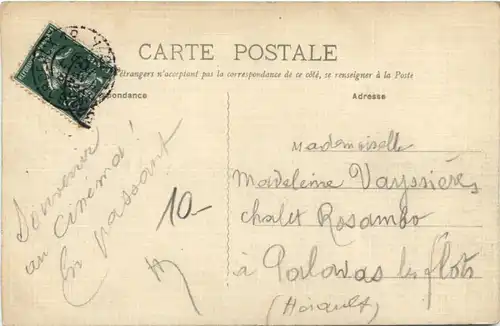 CARTE POSTALE
étrangers n'acceptant pas la correspondance de ce côté, se renseigner à la Poste
pondance
Adresse
Souvenir
au cinéma!
En passant
10-
Mademoiselle
Madeleine Vayssières
chalet Rosambo
à Palavas les flots
(Hérault)